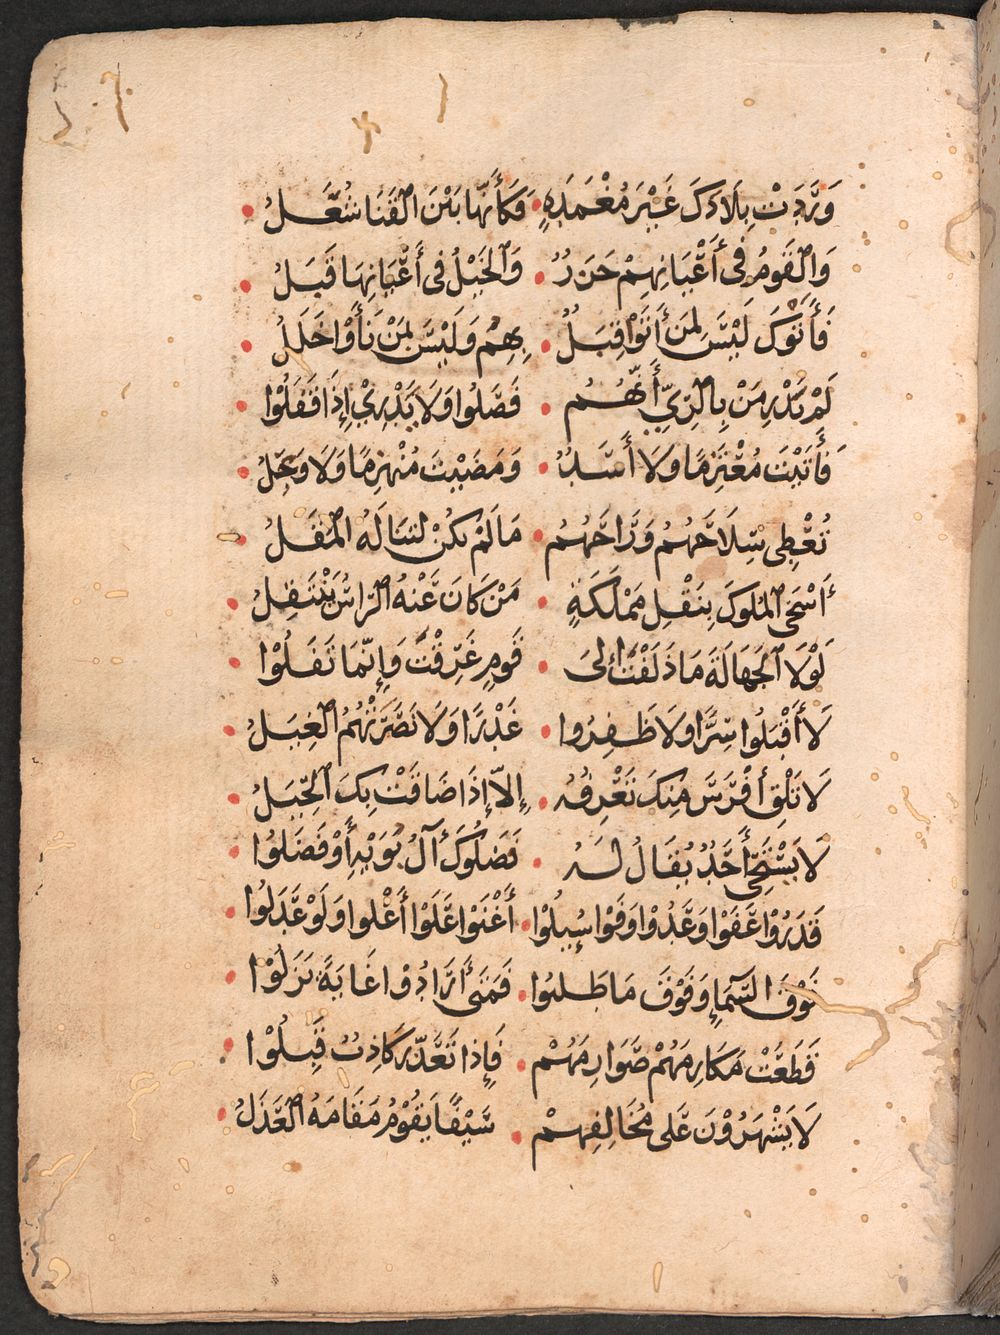 وَرَدَتْ بِلَادَكَ غَيْرَ مُغْمَدَةٍ • فَكَأَنَّهَا بَيْنَ الْقَنَا شُعَلُ •
وَالْقَوْمُ فِى أَعْيَانِهِمْ خَزَرٌ • وَالْخَيْلُ فِى أَعْيَانِهَا قَبَلُ •
فَأَتَوْكَ لَيْسَ لِمَنْ أَتَوْا قِبَلٌ • بِهِمُ وَلَيْسَ لِمَنْ نَأَوْا خَلَلُ •
لَمْ يَدْرِ مَنْ بِالرَّيِّ أَنَّهُمُ • فَصَلُوا وَلَا يَدْرِيْ إِذَا قَفَلُوْا •
فَأَتَيْتَ مُعْتَزِمًا وَلَا أَسَدٌ • وَمَضَيْتَ مُنْهَزِمًا وَلَا وَعِلُ •
تُعْطِى سِلَاحَهُمُ وَرَاحَهُمُ • مَا لَمْ يَكُنْ لِتَنَالَهُ الْمُقَلُ •
أَسْخَى الْمُلُوكِ بِنَقْلِ مَمْلَكَةٍ • مَنْ كَانَ عَنْهُ الرَّاسُ يَنْتَقِلُ •
لَوْلَا الْجَهَالَةُ مَا دَلَفْتَ إِلَى • قَوْمٍ غَرِقْتَ وَإِنَّمَا تَفَلُوْا •
لَا أَقْبَلُوا سِرًّا وَلَا ظَفِرُوا • غَدْرًا وَلَا نَصَرَتْهُمُ الْغِيَلُ •
لَا تَلْقَ أَفْرَسَ مِنْكَ تَعْرِفُهُ • إِلَّا إِذَا ضَاقَتْ بِكَ الْحِيَلُ •
لَا يَسْتَحِي أَحَدٌ يُقَالُ لَهُ • نَضَلُوكَ آلُ بُوَيْهِ أَوْ فَضَلُوا •
قَدَرُوْا عَفَوْا وَعَدُوْا وَفَوْا سُئِلُوْا • أَغْنَوْا عَلَوْا أَعْلَوا وَلَوْ عَدَلُوا •
فَوْقَ السَّمَاءِ وَفَوْقَ مَا طَلَبُوا • فَمَتَى أَرَادُوْا غَايَةً نَزَلُوْا •
قَطَعَتْ مَكَارِمُهُمْ صَوَارِمَهُمْ • فَإِذَا تَعَذَّرَ كَاذِبٌ قَبِلُوْا •
لَا يَشْهَرُوْنَ عَلَى مُخَالِفِهِمْ • سَيْفًا يَقُوْمُ مَقَامَهُ الْعَذَلُ •